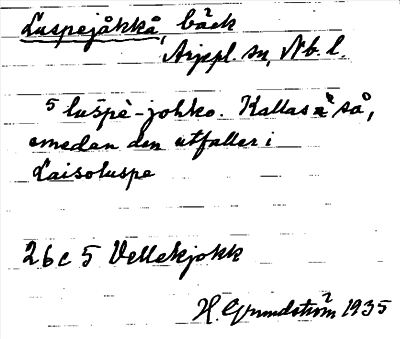 Luspejåkkå, bäck
Arjepl. sn, Nb. l.
5 lušpè-johko. Kallas så,
emedan den utfaller i
Laisoluspe
26c 5 Vellekjokk
H. Grundström 1935